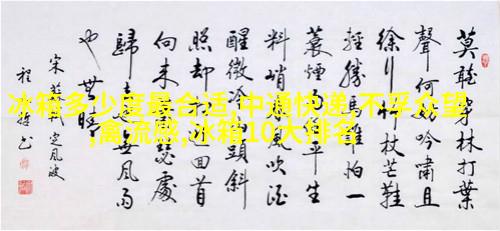 莫聽穿林打葉
聲何妨吟嘯且
徐行竹杖芒鞋
輕勝馬誰怕一
蓑煙雨任平生
料峭春風吹酒
醒微冷山頭斜
照却相迎回首
向來蕭瑟處
歸去也無風雨
也無晴
宋蘇軾定風波
程 书
冰箱多少度最合适,中通快递,不孚众望
,禽流感,冰箱10大排名